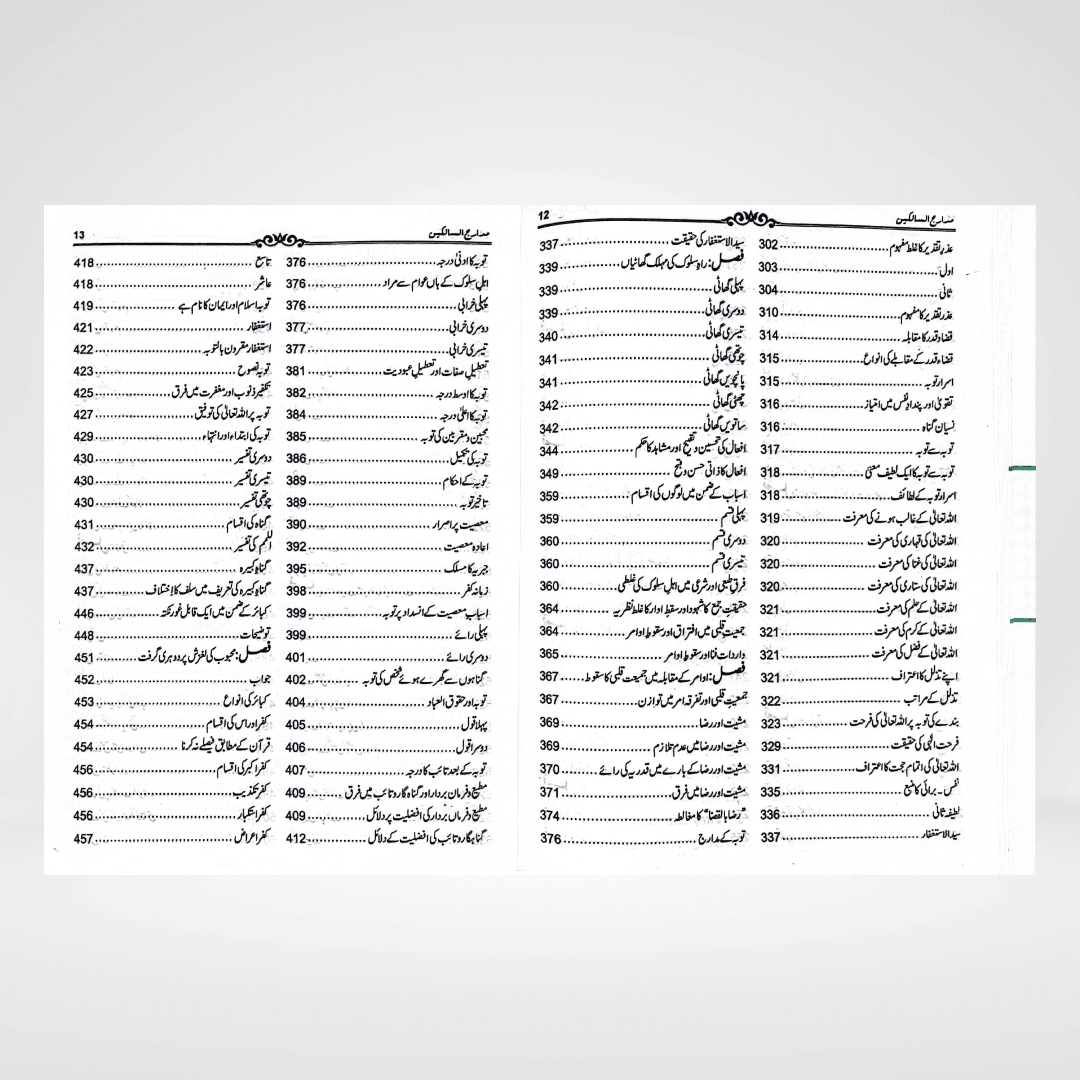 مدارج السالکین 12
عذرِ تقدیر کا غلط مفہوم 302
اول 303
ثانی 304
عذر تقدیر کا مفہوم 310
قضاء و قدر کا مقابلہ 314
قضاء و قدر کے مقابلے کی انواع 315
اسرارِ توبہ 315
تقویٰ اور پندارِ نفس میں امتیاز 316
نسیانِ گناہ 316
توبہ سے توبہ 317
توبہ سے توبہ کا ایک لطیف معنی 318
اسرارِ توبہ کے لطائف 318
اللہ تعالیٰ کے غالب ہونے کی معرفت 319
اللہ تعالیٰ کی قہاری کی معرفت 320
اللہ تعالیٰ کی غنا کی معرفت 320
اللہ تعالیٰ کی ستاری کی معرفت 320
اللہ تعالیٰ کے حلم کی معرفت 321
اللہ تعالیٰ کے کرم کی معرفت 321
اللہ تعالیٰ کے فضل کی معرفت 321
اپنے تذلل کا اعتراف 321
تذلل کے مراتب 322
بندے کی توبہ پر اللہ تعالیٰ کی فرحت 323
فرحتِ الٰہی کی حقیقت 329
اللہ تعالیٰ کی اتمامِ حجت کا اعتراف 331
نفس۔ برائی کا منبع 335
لطیفہ ثانی 336
سید الاستغفار 337
سید الاستغفار کی حقیقت 337
فصل: راہِ سلوک کی مہلک گھاٹیاں 339
پہلی گھاٹی 339
دوسری گھاٹی 339
تیسری گھاٹی 340
چوتھی گھاٹی 341
پانچویں گھاٹی 341
چھٹی گھاٹی 342
ساتویں گھاٹی 342
افعال کی تحسین و تقبیح اور مشاہد کا حکم 344
افعال کا ذاتی حسن و قبح 349
اسباب کے ضمن میں لوگوں کی اقسام 359
پہلی قسم 359
دوسری قسم 360
تیسری قسم 360
فرقِ طبعی اور شرعی میں اہلِ سلوک کی غلطی 360
حقیقتِ جمع کا شہود اور سقوطِ اوامر کا غلط نظریہ 364
جمعیتِ قلبی میں افتراق اور سقوطِ اوامر 364
وارداتِ فنا اور سقوطِ اوامر 365
فصل: اوامر کے مقابلہ میں جمعیت قلبی کا سقوط 367
جمعیتِ قلبی اور تفرقہ امر میں توازن 367
مشیت اور رضا 369
مشیت اور رضا میں عدمِ تلازم 369
مشیت اور رضا کے بارے میں قدریہ کی رائے 370
مشیت اور رضا میں فرق 371
"رضا بالقضا" کا مغالطہ 374
توبہ کے مدارج 376
مدارج السالکین 13
توبہ کا ادنیٰ درجہ 376
اہلِ سلوک کے ہاں عوام سے مراد 376
پہلی خرابی 376
دوسری خرابی 377
تیسری خرابی 377
تعطیلِ صفات اور تعطیلِ عبودیت 381
توبہ کا اوسط درجہ 382
توبہ کا اعلیٰ درجہ 384
محبین و مقربین کی توبہ 385
توبہ کی تکمیل 386
توبہ کے احکام 389
تاخیرِ توبہ 389
معصیت پر اصرار 390
اعادہ معصیت 392
جبریہ کا مسلک 395
زمانہ کفر 398
اسبابِ معصیت کے انسداد پر توبہ 399
پہلی رائے 399
دوسری رائے 401
گناہوں سے گھرے ہوئے شخص کی توبہ 402
توبہ اور حقوق العباد 404
پہلا قول 405
دوسرا قول 406
توبہ کے بعد تائب کا درجہ 407
مطیع و فرماں بردار اور گناہ گار و تائب میں فرق 409
مطیع و فرماں بردار کی افضلیت پر دلائل 409
گناہگار و تائب کی افضلیت کے دلائل 412
تاسع 418
عاشر 418
توبہ اسلام اور ایمان کا نام ہے 419
استغفار 421
استغفار مقرون بالتوبہ 422
توبہ نصوح 423
تکفیرِ ذنوب اور مغفرت میں فرق 425
توبہ پر اللہ تعالیٰ کی توفیق 427
توبہ کی ابتداء اور انتہاء 429
دوسری تفسیر 430
تیسری تفسیر 430
چوتھی تفسیر 430
گناہ کی اقسام 431
اللمم کی تفسیر 432
گناہِ کبیرہ 437
گناہِ کبیرہ کی تعریف میں سلف کا اختلاف 437
کبائر کے ضمن میں ایک قابلِ غور نکتہ 446
توضیحات 448
فصل: محبوب کی لغزش پر دوہری گرفت 451
جواب 452
کبائر کی انواع 453
کفر اور اس کی اقسام 454
قرآن کے مطابق فیصلے نہ کرنا 454
کفرِ اکبر کی اقسام 456
کفرِ تکذیب 456
کفرِ استکبار 456
کفرِ اعراض 457